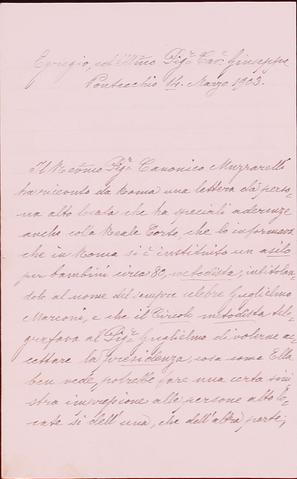 Egregio, ed Ill.mo Sig.r Cav.r Giuseppe
Pontecchio 14. Marzo 1903.
Il Rev.mo Sig.r Canonico Muzzarelli
ha ricevuto da Roma una lettera da perso-
na alto locata che ha speciali aderenze
anche colla Reale Corte, che lo informava
che in Roma si è instituito un asilo
per bambini circa 80, metodista, intitolan-
dolo al nome del sempre celebre Guglielmo
Marconi, e che il Circolo metodista tele-
grafava al Sig.r Guglielmo di volerne ac-
cettare la presidenza, cosa come Ella
ben vede, potrebbe fare una certa sini-
stra impressione alle persone alto lo-
cate sì dell'una, che dell'altra parte;